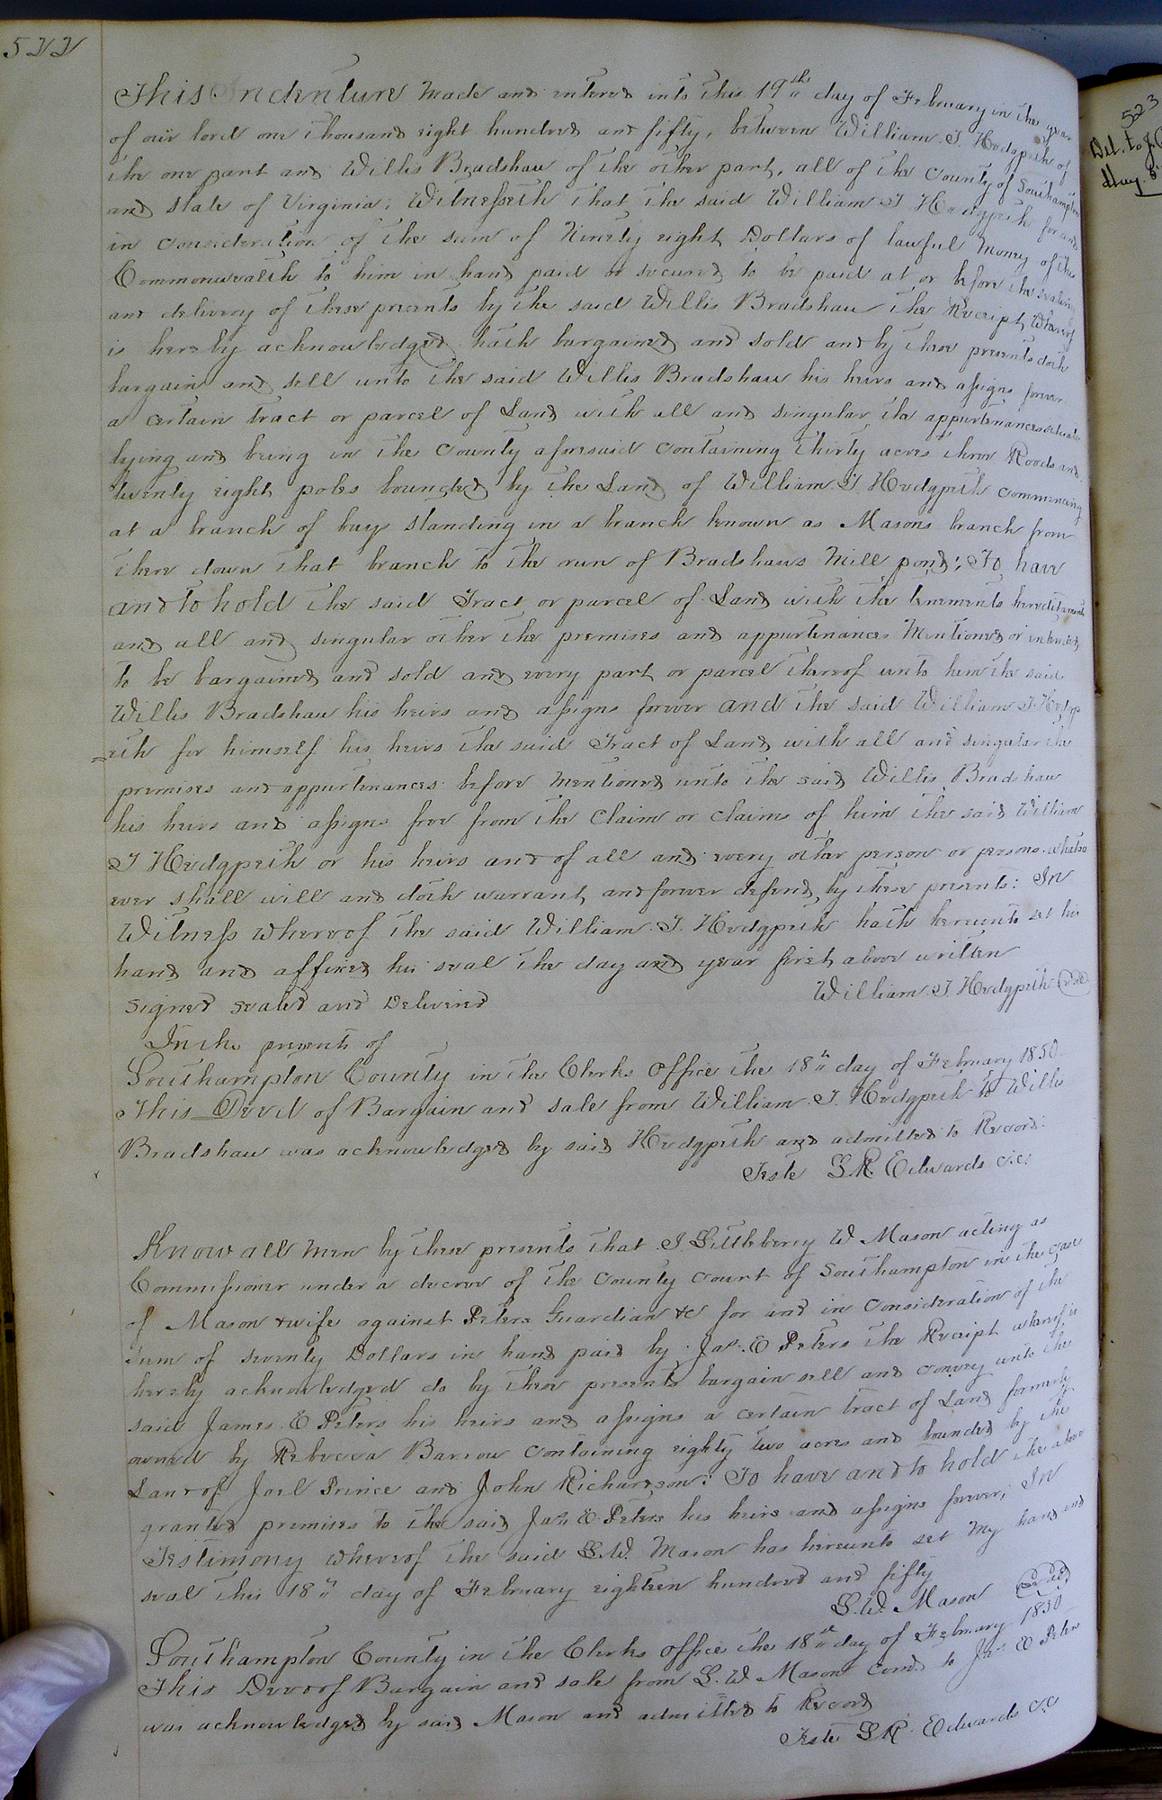 522
This Indenture Made and entered into this 19th day of February in the year
of our lord one thousand eight hundred and fifty, between William J. Hedgpeth of
the one part and Willis Bradshaw of the other part, all of the County of Southampton
and state of Virginia: Witnesseth that the said William J Hedgpeth for and
in consideration of the sum of Ninety eight Dollars of lawful Money of this
Commonwealth to him in hand paid or secured to be paid at or before the sealing
and delivery of these presents by the said Willis Bradshaw the Receipt Whereof
is hereby acknowledged hath bargained and sold and by these presents doth
bargain and sell unto the said Willis Bradshaw his heirs and assigns forever
a certain tract or parcel of Land with all and singular the appurtenances situate
lying and being in the County aforesaid Containing thirty acres three Roods and
twenty eight poles bounded by the Land of William J Hedgpeth commencing
at a branch of bays standing in a branch known as Masons branch from
there down that branch to the run of Bradshaws Mill pond; To have
and to hold the said Tract or parcel of Land with the tenements hereditaments
and all and singular other the premises and appurtenances Mentioned or intended
to be bargained and sold and every part or parcel thereof unto him the said
Willis Bradshaw his heirs and assigns forever and the said William J Hedgp
=eth for himself his heirs the said Tract of Land with all and singular the
premises and appurtenances before Mentioned unto the said Willis Bradshaw
his heirs and assigns free from the Claim or claims of him the said William
J Hedgpeth or his heirs and of all and every other person or persons whatso
ever shall will and doth warrant and forever defend by these presents: In
Witness whereof the said William J. Hedgpeth hath hereunto set his
hand and affixed his seal the day and year first above written
Signed sealed and Delivered William J Hedgpeth seal
In the presents of
Southampton County in the Clerks Office the 18th day of February 1850
This Deed of Bargain and sale from William J. Hedgpeth to Willis
Bradshaw was acknowledged by said Hedgpeth and admitted to Record:
Teste L.R. Edwards c.c.
Know all Men by these presents that I Littleberry W Mason acting as
Commissioner under a decree of the County Court of Southampton in the case
of Mason & wife against Peters Guardian &c for and in Consideration of the
Sum of seventy Dollars in hand paid by Jas. E Peters the Receipt whereof is
hereby acknowledged do by these presents bargain sell and convey unto the
said James E Peters his heirs and assigns a certain tract of Land formerly
owned by Rebecca Barrow Containing eighty two acres and bounded by the
Land of Joel Prince and John Richardson: To have and to hold the above
granted premises to the said Jas E Peters his heirs and assigns forever; In
Testimony whereof the said L.W. Mason has hereunto set My hand and
seal this 18th day of February eighteen hundred and fifty
L.W. Mason seal
Southampton County in the Clerks office the 18th day of February 1850
This Deed of Bargain and sale from L. W Mason Comr. to Jas E Peters
was acknowledged by said Mason and admitted to Record
Teste L R Edwards c.c
523
Del. to J.
May. 5